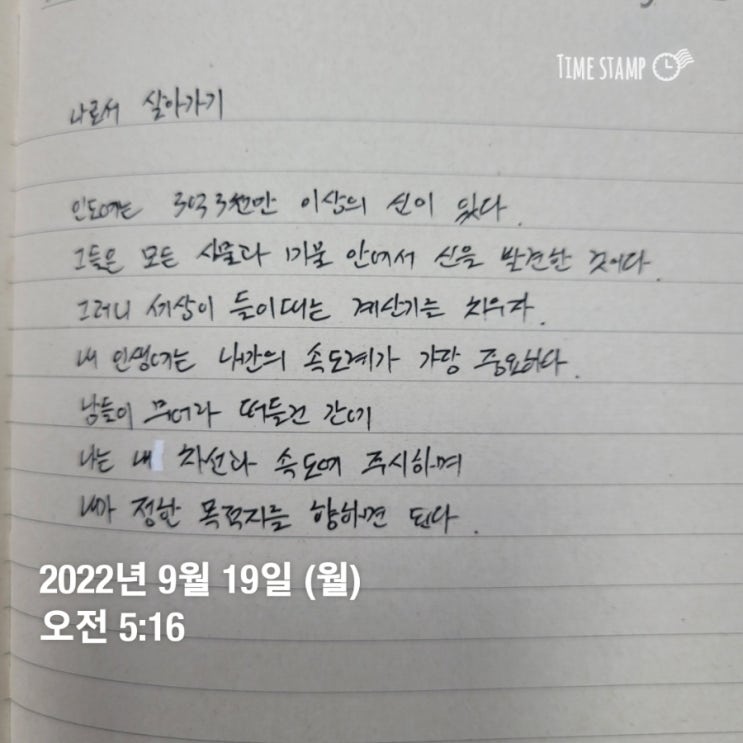 TIME STAMP
나로서 살아가기
인도에는 3억 3천만 이상의 신이 있다.
그들은 모든 사물과 미물 안에서 신을 발견한 것이다.
그러니 세상이 들이대는 계산기는 치우자.
내 인생에는 나만의 속도계가 가장 중요하다.
남들이 뭐라 떠들건 간에
나는 내 차선과 속도에 주시하며
내가 정한 목적지를 향하면 된다.
2022년 9월 19일 (월)
오전 5:16